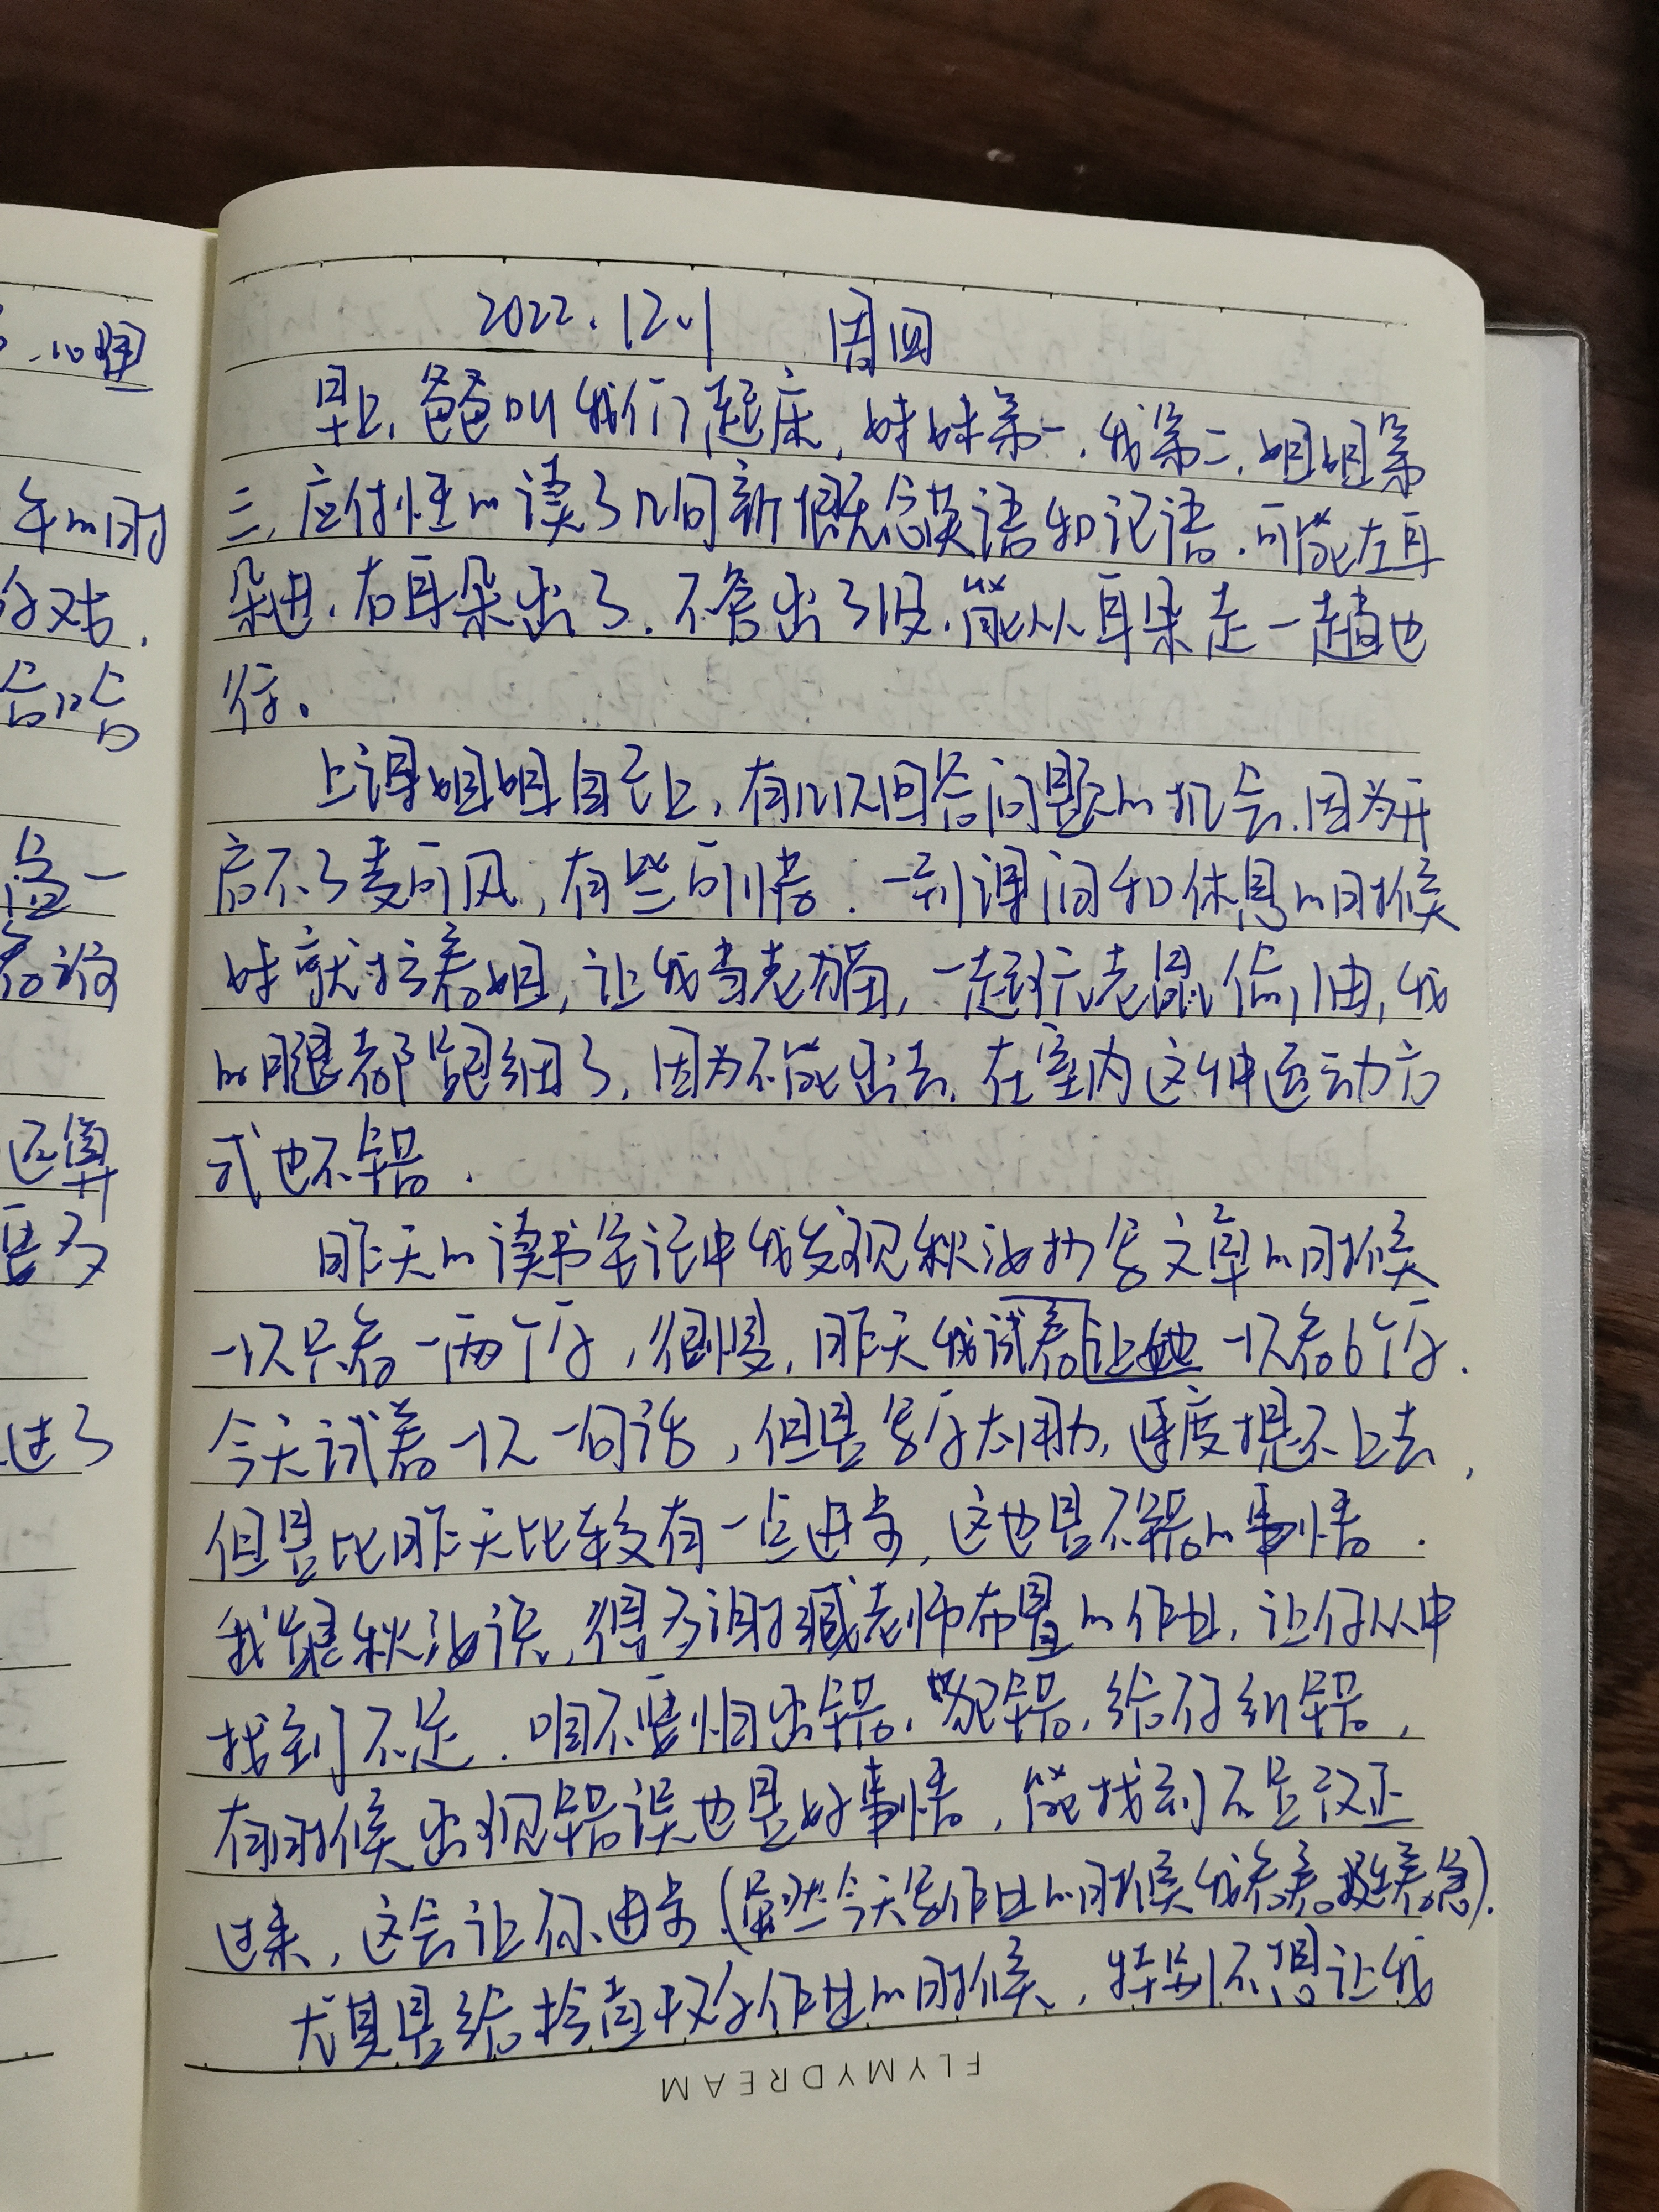 2022.12.1 周四
早上,爸爸叫我们起床,妹妹第一,我第二,姐姐第
三,应付性的读了几句新概念英语和论语,可能左耳
朵进,右耳朵出了.不管出了没,能从耳朵走一趟也
行。
上课姐姐自己上,有几次回答问题的机会,因为开
启不了麦可风,有些可惜.一到课间和休息的时候
妹就拉着姐,让我当老猫,一起玩老鼠偷油,我
的腿都跑细了,因为不能出去,在室内这种运动方
式也不错.
昨天的读书笔记中我发现秋汝抄写文章的时候
一次只看一两个字,很慢,昨天我试着让她一次看6个字.
今天试着一次一句话,但是写字太用力,速度提不上去,
但是比昨天比较有一点进步,这也是不错的事情.
我跟秋汝说,得多谢臧老师布置的作业,让你从中
找到不足.咱不要怕出错,犯错,给你纠错,
有时候出现错误也是好事情,能找到不足改正
过来,这会让你进步.(虽然今天写作业的时候我看着挺着急).
尤其是给检查数学作业的时候,特别不想让我
FLYMYDREAM
年的时
字戏.
益一
还算
要多
过了